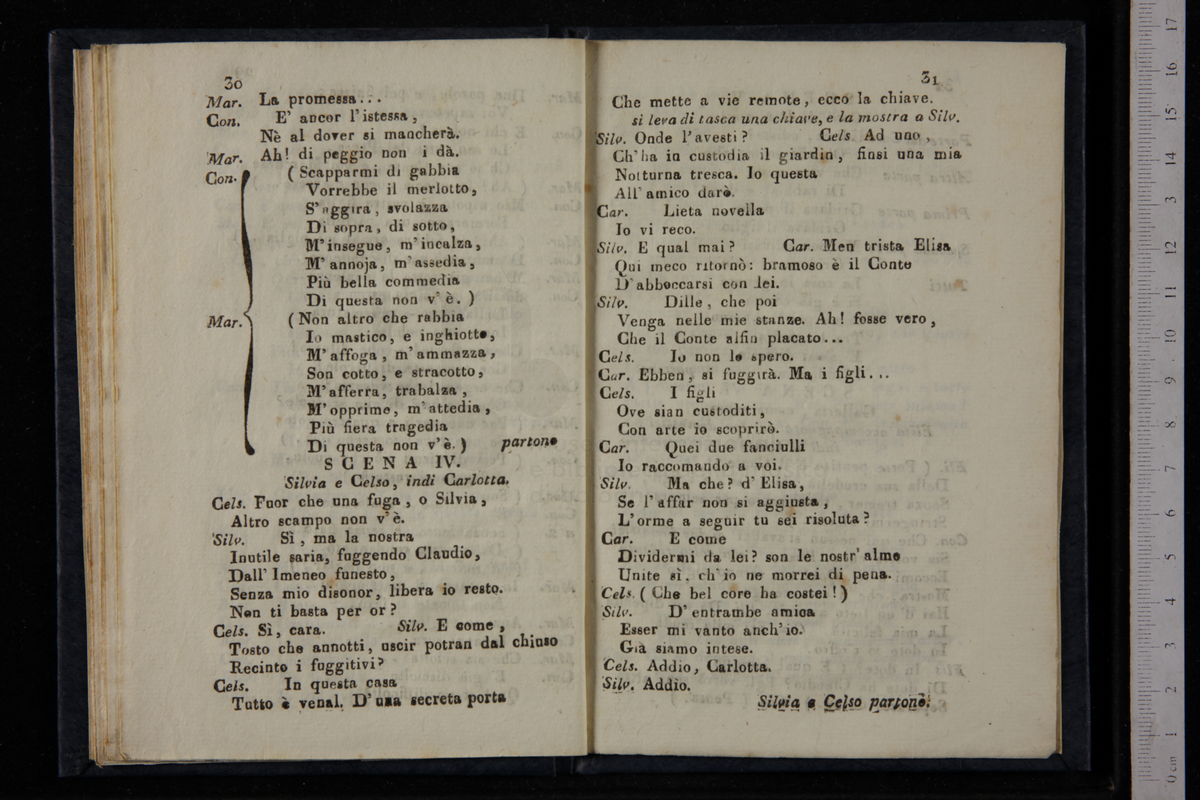 30
Mar. La promessa...
Con. E' ancor l'istessa,
Nè al dover si mancherà.
Mar. Ah! di peggio non i dà.
Con. (Scapparmi di gabbia
Vorrebbe il merlotto,
S'aggira, svolazza
Di sopra, di sotto,
M'insegue, m'incalza,
M'annoja, m'assedia,
Più bella commedia
Di questa non v'è. )
Mar. (Non altro che rabbia
Io mastico, e inghiotto,
M'affoga, m'ammazza,
Son cotto, e stracotto,
M'afferra, trabalza,
M'opprime, m'attedia,
Più fiera tragedia
Di questa non v'è. ) partono
SCENA IV.
Silvia e Celso, indi Carlotta.
Cels. Fuor che una fuga, o Silvia,
Altro scampo non v'è.
Silv. Sì, ma la nostra
Inutile saria, fuggendo Claudio,
Dall' Imeneo funesto,
Senza mio disonor, libera io resto.
Non ti basta per or?
Cels. Sì, cara. Silv. E come,
Tosto che annotti, uscir potran dal chiuso
Recinto i fuggitivi?
Cels. In questa casa
Tutto è venal. D'una secreta porta
31
Che mette a vie remote, ecco la chiave.
si leva di tasca una chiave, e la mostra a Silv.
Silv. Onde l'avesti? Cels. Ad uno,
Ch'ha in custodia il giardin, finsi una mia
Notturna tresca. Io questa
All' amico darò.
Car. Lieta novella
Io vi reco.
Silv. E qual mai? Car. Men trista Elisa
Qui meco ritornò: bramoso è il Conte
D'abboccarsi con lei.
Silv. Dille, che poi
Venga nelle mie stanze. Ah! fosse vero,
Che il Conte alfin placato...
Cels. Io non lo spero.
Car. Ebben, si fuggirà. Ma i figli...
Cels. I figli
Ove sian custoditi,
Con arte io scoprirò.
Car. Quei due fanciulli
Io raccomando a voi.
Silv. Ma che? d'Elisa,
Se l'affar non si aggiusta,
L'orme a seguir tu sei risoluta?
Car. E come
Dividermi da lei? son le nostr' alme
Unite sì, ch'io ne morrei di pena.
Cels. ( Che bel core ha costei! )
Silv. D'entrambe amica
Esser mi vanto anch'io.
Già siamo intese.
Cels. Addio, Carlotta.
Silv. Addio.
Silvia e Celso partono.